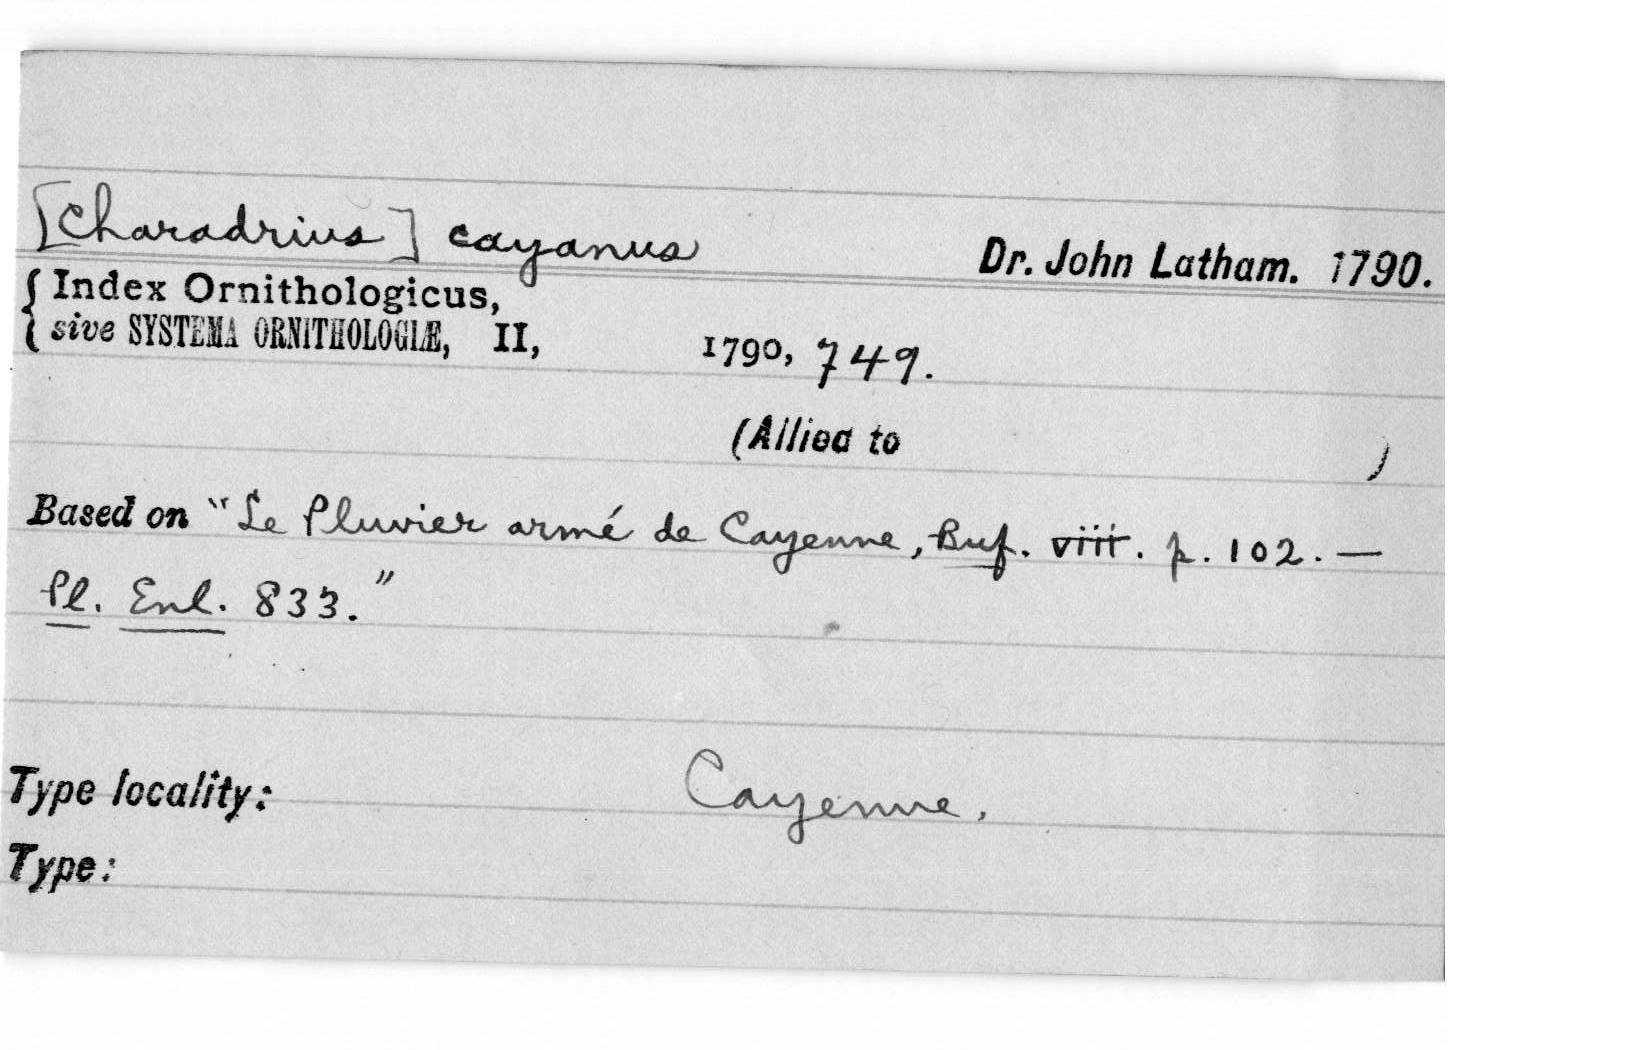 [Charadrius] cayanus
Dr. John Latham. 1790.
Index Ornithologicus,
sive SYSTEMA ORNITHOLOGIÆ, II, 1790, 749.
(Allied to )
Based on "Le Pluvier armé de Cayenne, Buf. viii. p. 102. —
Pl. Enl. 833."
Type locality: Cayenne.
Type: